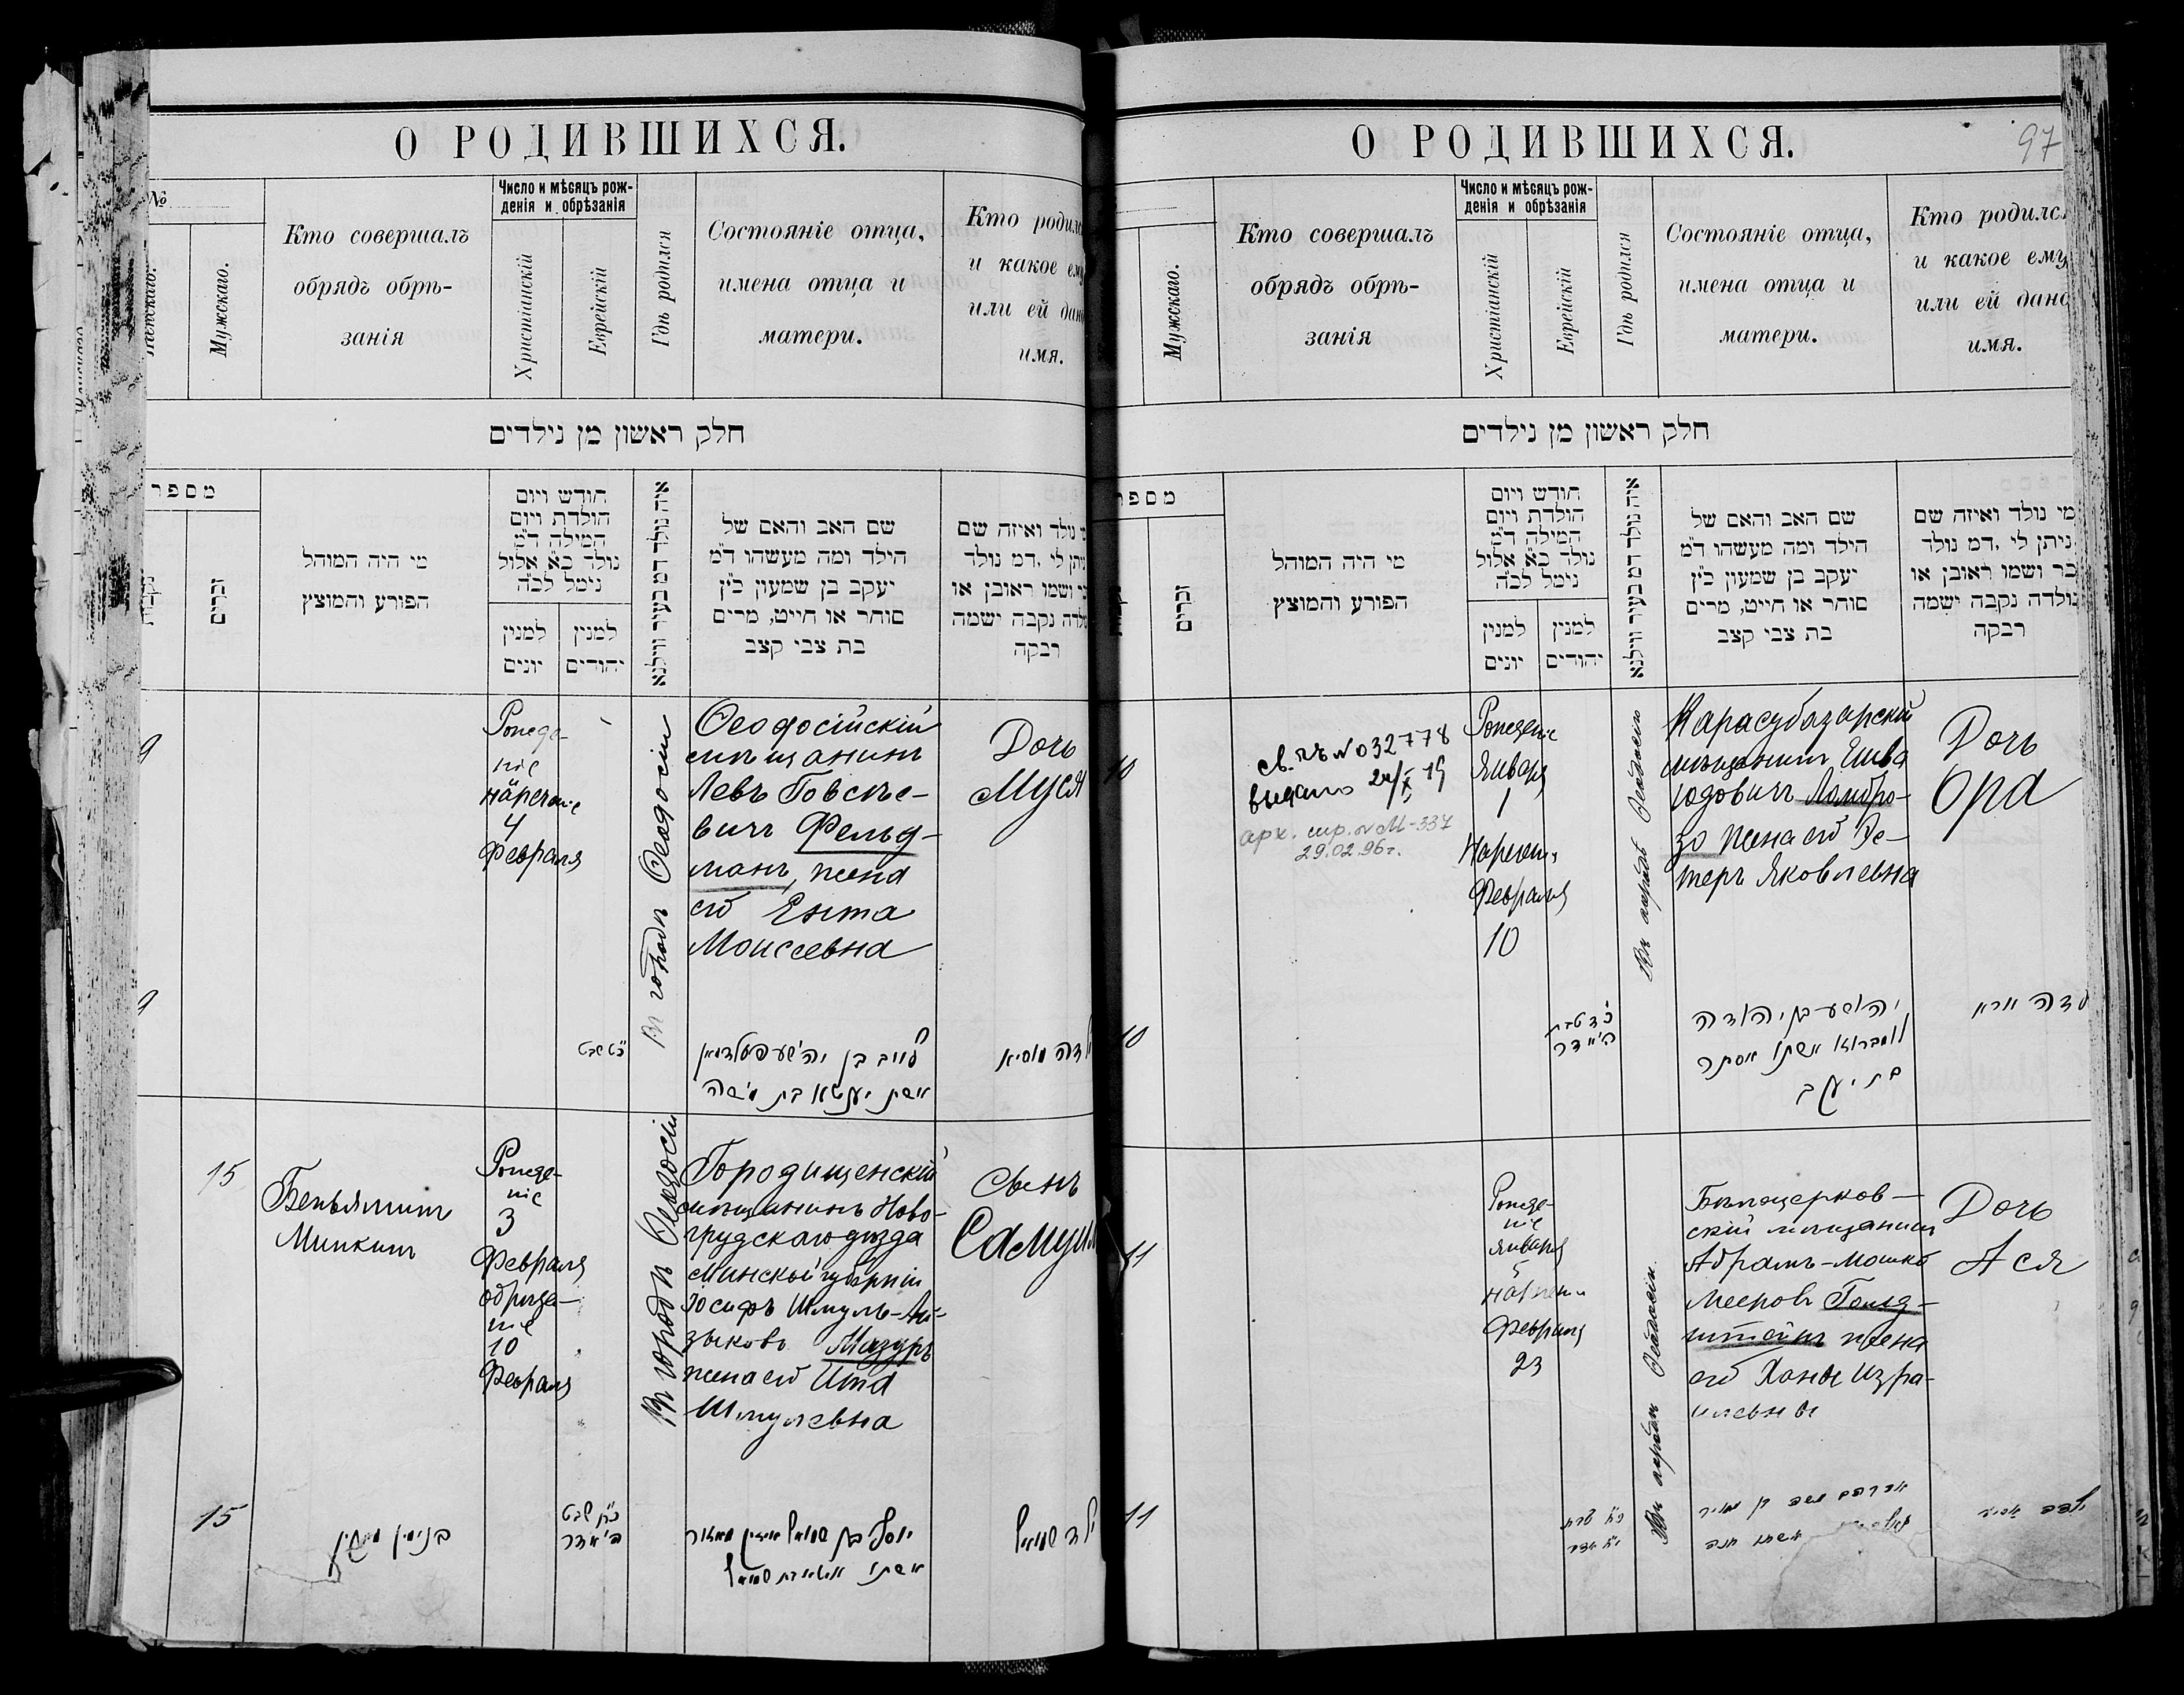 О РОДИВШИХСЯ.
№
Женскаго.
Мужскаго.
Кто совершалъ
обрядъ обрѣ-
занія
Число и мѣсяцъ рож-
денія и обрѣзанія
Христіанскій
Еврейскій
Гдѣ родился
Состояніе отца,
имена отца и
матери.
Кто родился
и какое ему
или ей дано
имя.
חלק ראשון מן נילדים
מספר
זכרים
מי היה המוהל
הפורע והמוצץ
חודש ויום
הולדת ויום
המילה ד״מ
נולד כ״א אלול
נימל לכ״ה
למנין
יונים
למנין
יהודים
איה נולד דמ בעיר ווילנא
שם האב והאם של
הילד ומה מעשהו ד״מ
יעקב בן שמעון כ״ץ
סוחר או חייט, מרים
בת צבי קצב
מי נולד ואיזה שם
ניתן לי .דמ נולד
זכר ושמו ראובן או
נולדה נקבה ישמה
רבקה
9
Рожде-
ніе
нареченіе
4
Февраля
Въ городѣ Ѳеодосіи
Ѳеодосійскій
мѣщанинъ
Левъ Говсѣе-
вичъ Фельд-
манъ, жена
его Ента
Моисеевна
Дочь
Муся
9
כ״ט שבט
לייב בן יהושע פעלדמאן
אשתו יענטא בת משה
ילדה מוסיא
15
Беньяминъ
Минкинъ
Рожде-
ніе
3
Февраля
обрѣза-
ніе
10
Февраля
Въ городѣ Ѳеодосіи
Городищенскій
мѣщанинъ Ново-
грудскаго уѣзда
Минской губерніи
Іосифъ Шмуль-Ай-
зыковъ Мазуръ
жена его Ита
Шмулевна
Сынъ
Самуил
15
בנימין מינקין
כ״ח שבט
ה׳ אדר
יוסף בן שמואל אייזיק מאזור
אשתו איטא בת שמואל
ילד שמואל
О РОДИВШИХСЯ.
97
Мужскаго.
Кто совершалъ
обрядъ обрѣ-
занія
Число и мѣсяцъ рож-
денія и обрѣзанія
Христіанскій
Еврейскій
Гдѣ родился
Состояніе отца,
имена отца и
матери.
Кто родился
и какое ему
или ей дано
имя.
חלק ראשון מן נילדים
מספר
זכרים
מי היה המוהל
הפורע והמוצץ
חודש ויום
הולדת ויום
המילה ד״מ
נולד כ״א אלול
נימל לכ״ה
למנין
יונים
למנין
יהודים
איה נולד דמ בעיר ווילנא
שם האב והאם של
הילד ומה מעשהו ד״מ
יעקב בן שמעון כ״ץ
סוחר או חייט, מרים
בת צבי קצב
מי נולד ואיזה שם
ניתן לי .דמ נולד
זכר ושמו ראובן או
נולדה נקבה ישמה
רבקה
10
св. № 032778
выдано 24/X 19
арх. спр. № М-337
29.02.96г.
Рожденіе
Января
1
Наречен.
Февраля
10
Въ городѣ Ѳеодосіи
Карасубазарскій
мѣщанинъ Ешва
Юдовичъ Ломбро-
зо жена его Эс-
теръ Яковлевна
Дочь
Ора
10
כ״ד טבת
ה׳ אדר
יהושע בן יהודה
לומברוזו אשתו אסתר
בת יעקב
ילדה אורא
11
Рожде-
ніе
Января
5
наречен
Февраля
23
Въ городѣ Ѳеодосіи
Бѣлоцерков-
скій мѣщанинъ
Абрамъ-Мошко
Мееровъ Гольд-
штейнъ жена
его Ханы Изра-
илевны
Дочь
Ася
11
אברהם משה בן מאיר
אשתו חנה
ילדה אסיא